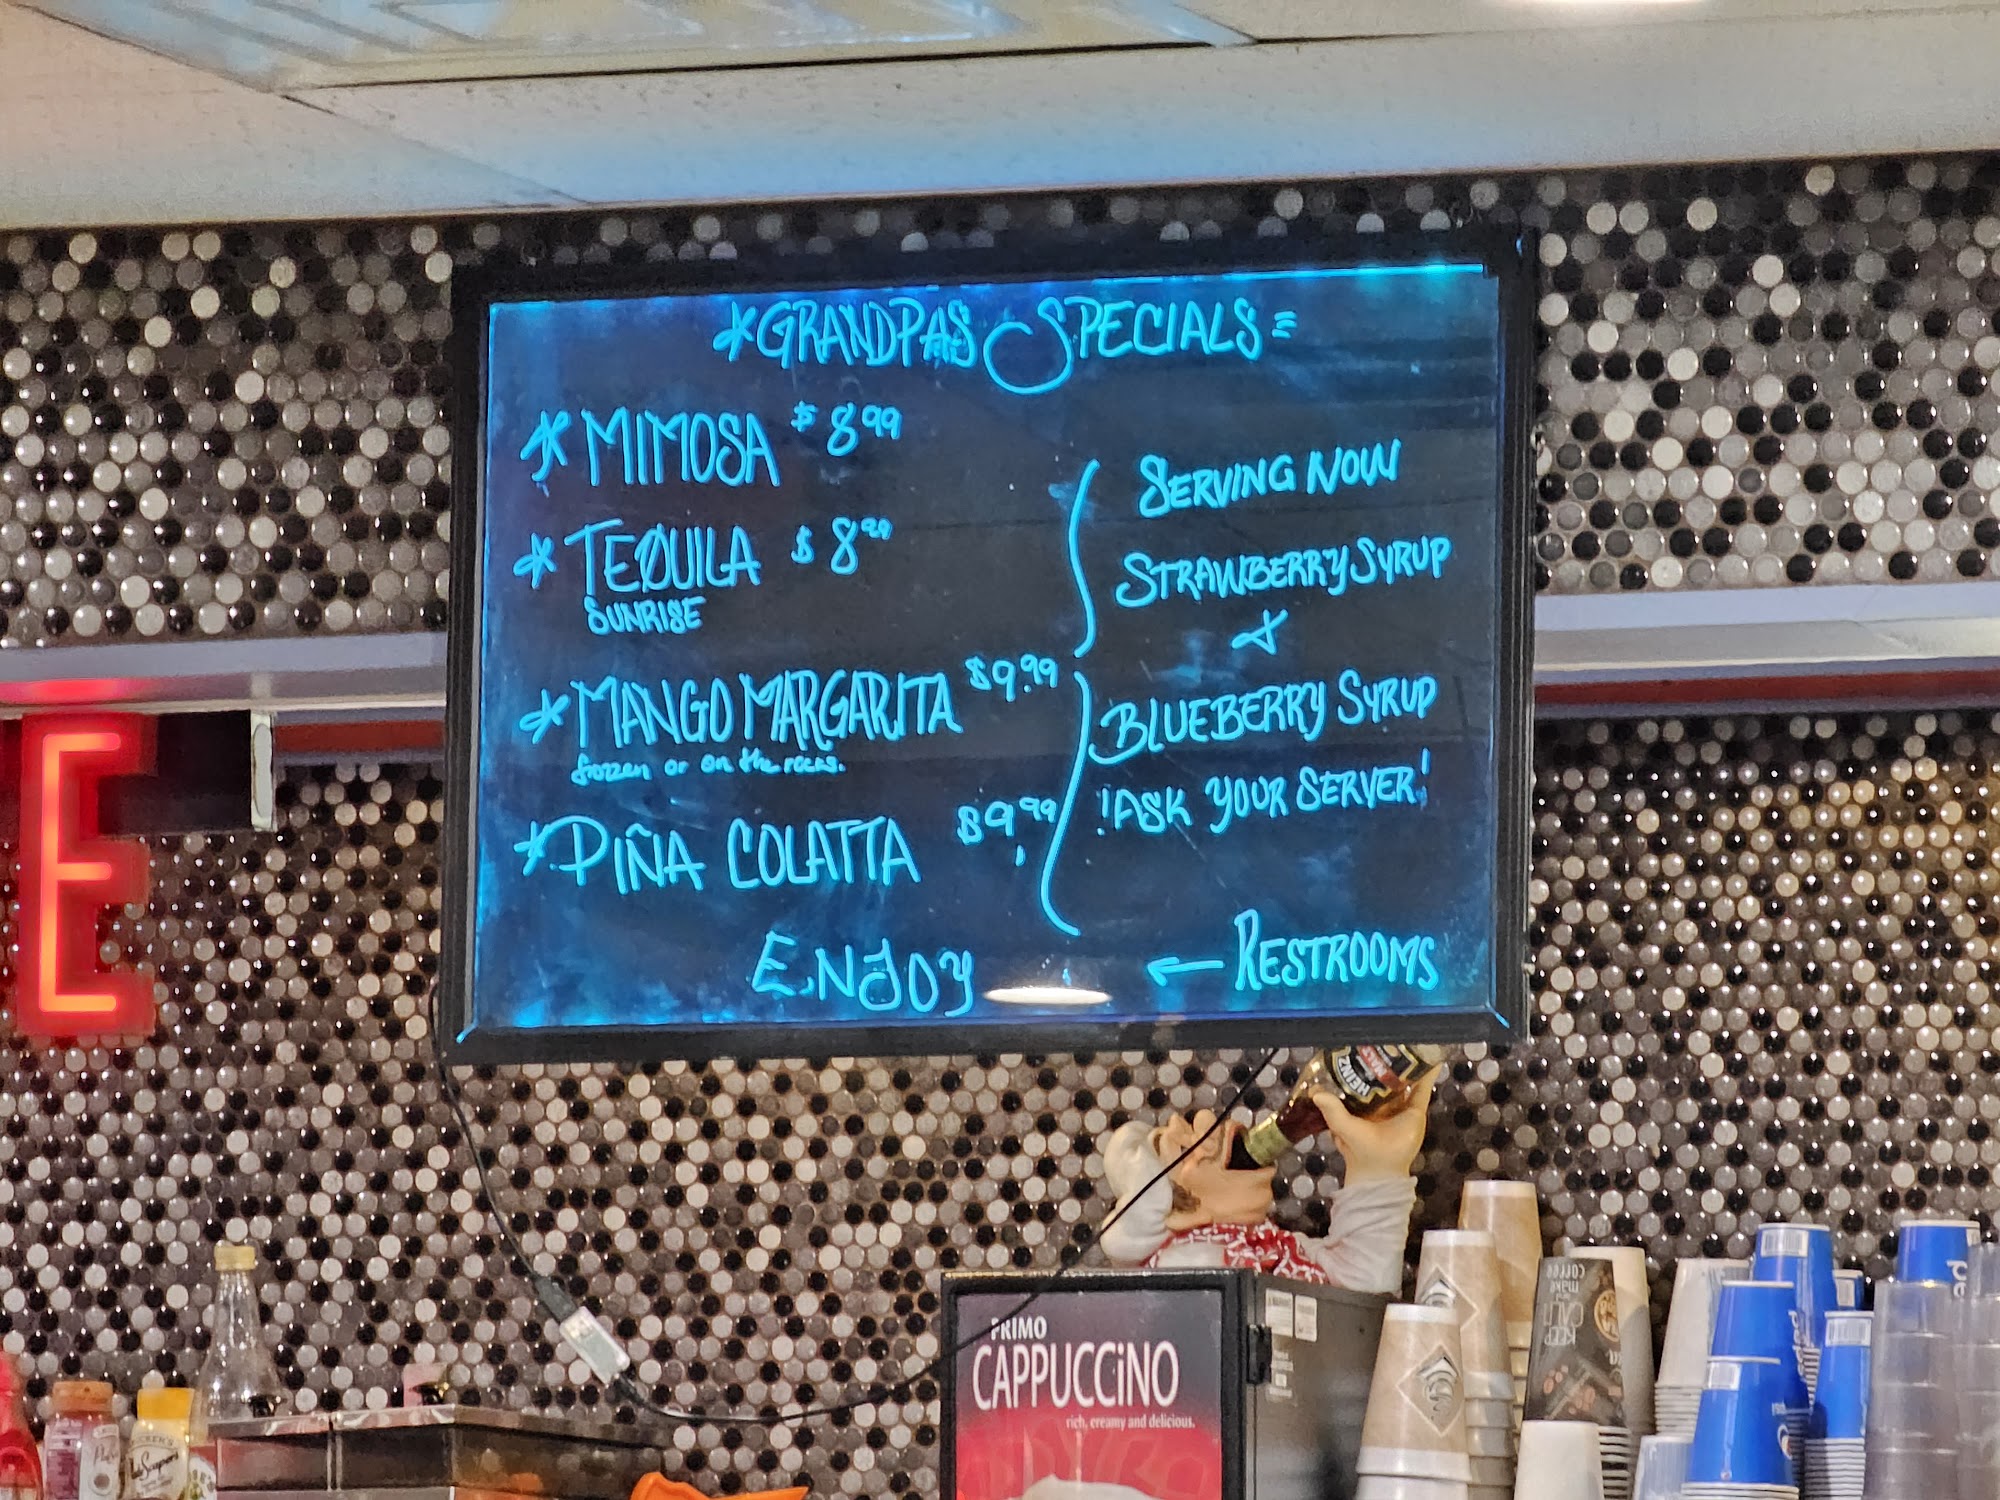 *GRANDPAS SPECIALS=
* MIMOSA $8.99
* TEQUILA $8.99
SUNRISE
* MANGO MARGARITA $9.99
frozen or on the rocks.
* PIÑA COLATTA $9.99
ENJOY
SERVING NOW
STRAWBERRY SYRUP
&
BLUEBERRY SYRUP
!ASK YOUR SERVER!
← RESTROOMS
E
PRIMO
CAPPUCCiNO
rich, creamy and delicious.
KEEP
CALM
and
make
COFFEE
pepsi